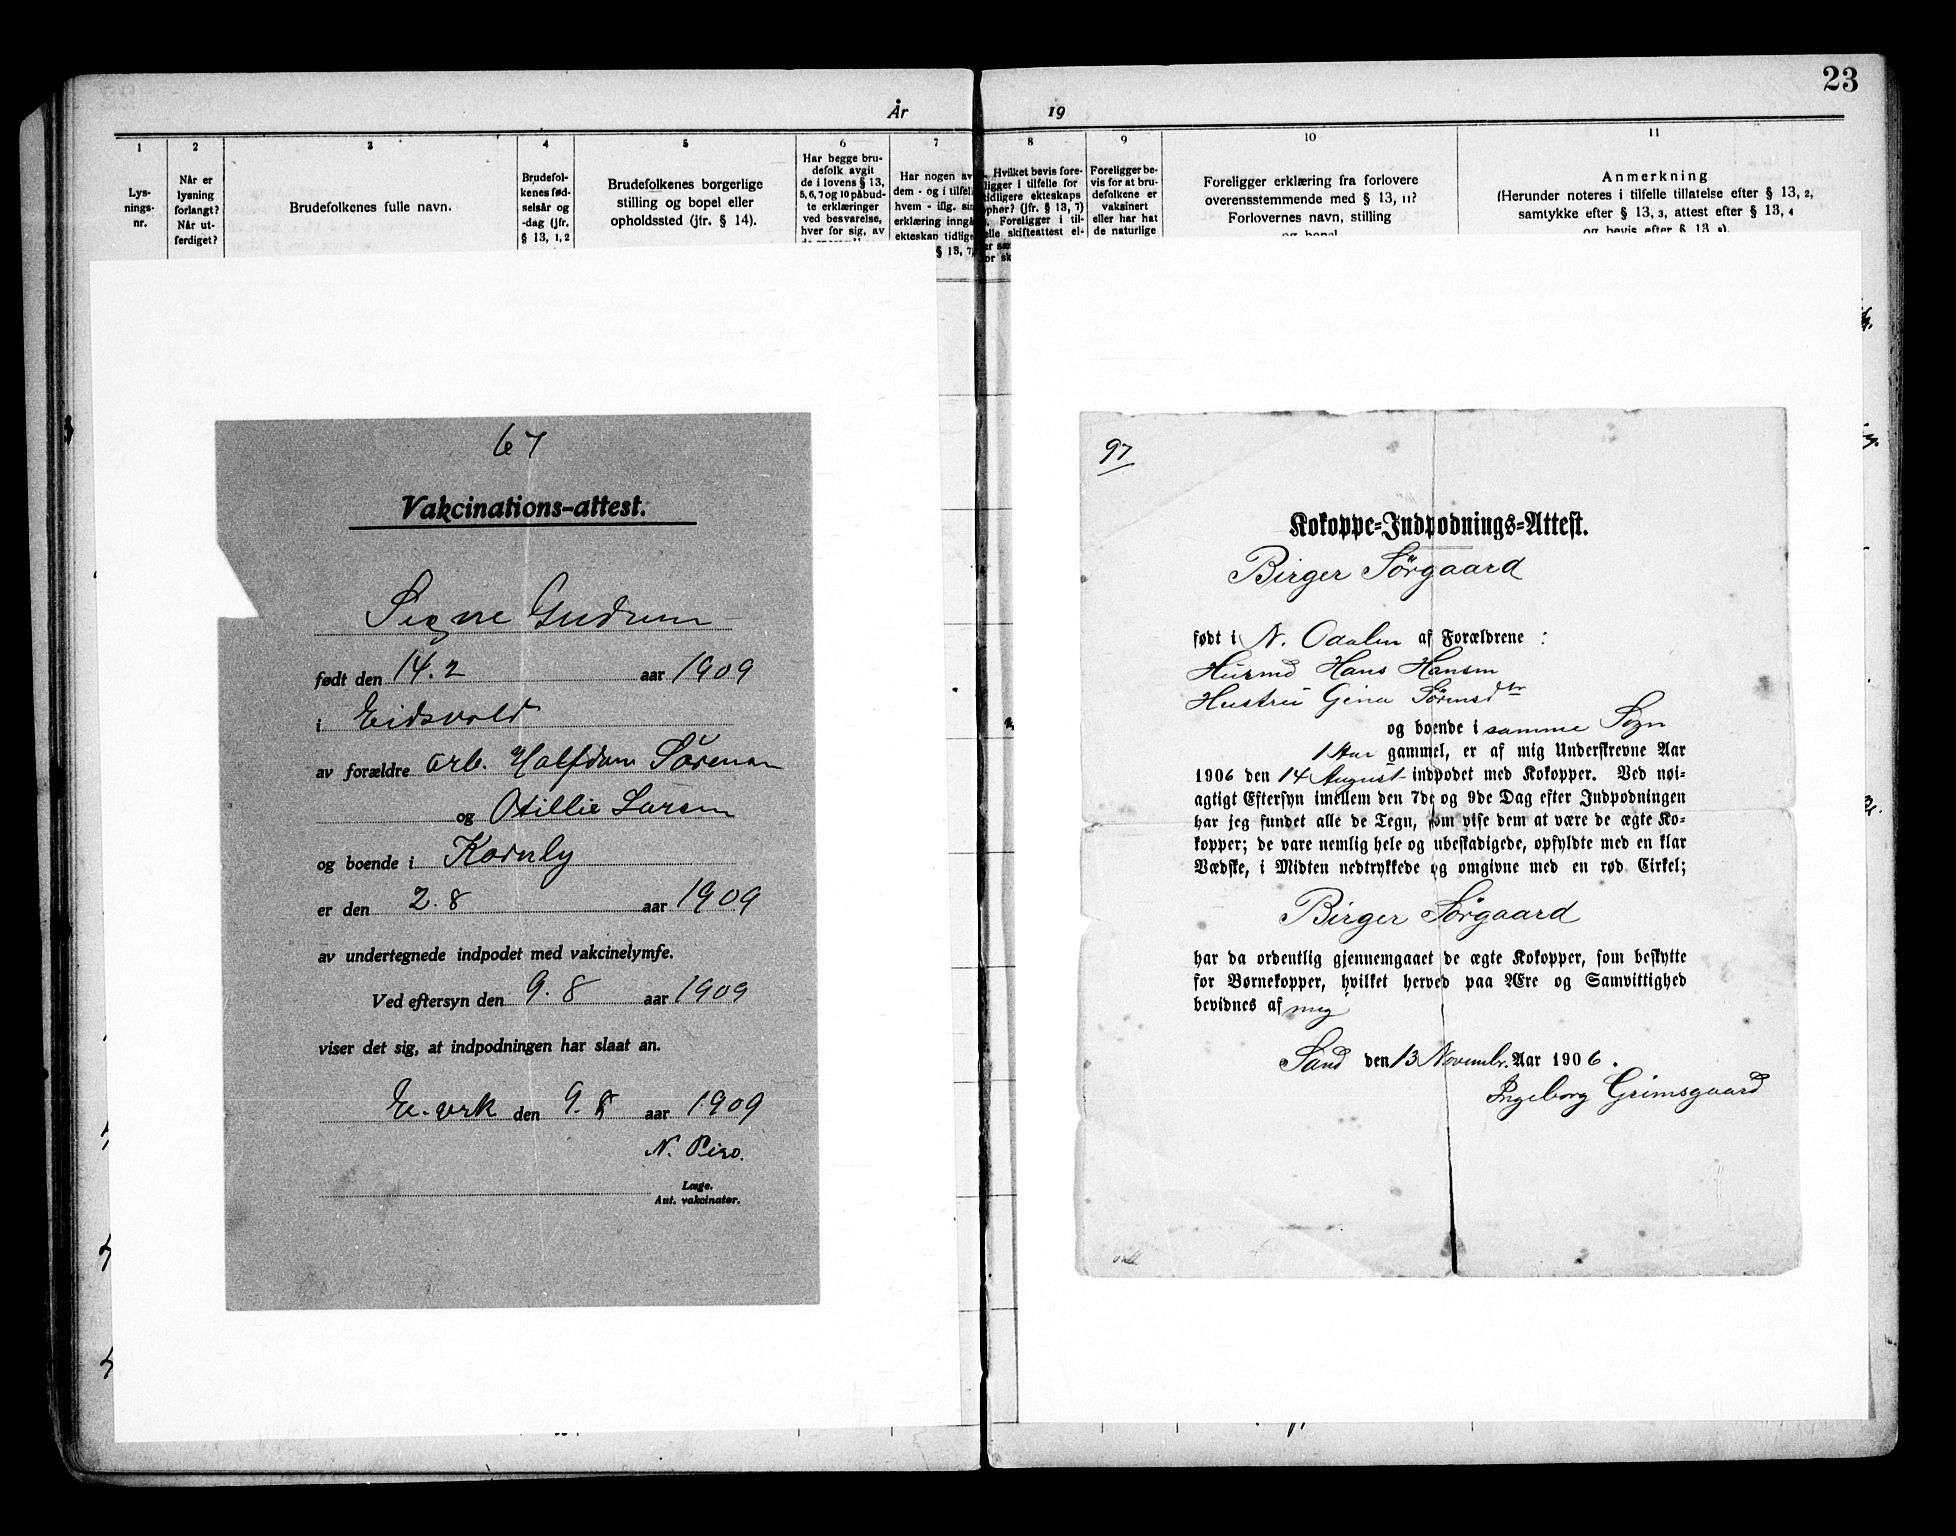 23
År 19
1 2 3 4 5 6 7 8 9 10 11
Lys-
nings-
nr.
Når er
lysning
forlangt?
Når ut-
ferdiget?
Brudefolkenes fulle navn.
Brudefol-
kenes fød-
selsår og
-dag (jfr.
§ 13, 1, 2
Brudefolkenes borgerlige
stilling og bopel eller
opholdssted (jfr. § 14).
Har begge bru-
defolk avgit
de i lovens § 13,
5, 6, 7 og 10 påbud-
te erklæringer
ved besvarelse,
hver for sig, av
Har nogen av
dem - og i tilfelle
hvem - iflg. sin
erklæring inngå
ekteskap tidlige
§ 13, 7
Hvilket bevis fore-
ligger i tilfelle for
tidligere ekteskaps
ophør? (jfr. § 13, 7)
Foreligger i til-
elle skifteattest el-
Foreligger be-
vis for at bru-
defolkene er
vaksinert
eller har hat
de naturlige
Foreligger erklæring fra forlovere
overensstemmende med § 13, 11?
Forlovernes navn, stilling
og bopel
Anmerkning
(Herunder noteres i tilfelle tillatelse efter § 13, 2,
samtykke efter § 13, 3, attest efter § 13, 4
og bevis efter § 13, 9).
67
Vakcinations-attest.
Signe Gudrun
født den 14.2 aar 1909
i Eidsvold
av forældre arb. Halfdan Sörensen
og Otillie Larsen
og boende i Kornly
er den 2.8 aar 1909
av undertegnede indpodet med vakcinelymfe.
Ved eftersyn den 9.8 aar 1909
viser det sig, at indpodningen har slaat an.
E.verk den 9.8 aar 1909
N. Piro.
Læge.
Aut. vakcinatør.
97
Kokoppe-Indpodnings-Attest.
Birger Sörgaard
født i N. Odalen af Forældrene :
Husmd Hans Hansen
Hustru Gina Sörensdtr
og boende i samme Sogn
1 Aar gammel, er af mig Underskrevne Aar
1906 den 14 August indpodet med Kokopper. Ved nøi-
agtigt Eftersyn imellem den 7de og 9de Dag efter Indpodningen
har jeg fundet alle de Tegn, som vise dem at være de ægte Ko-
kopper; de vare nemlig hele og ubeskadigede, opfyldte med en klar
Vædske, i Midten nedtrykkede og omgivne med en rød Cirkel;
Birger Sörgaard
har da ordentlig gjennemgaaet de ægte Kokopper, som beskytte
for Børnekopper, hvilket herved paa Ære og Samvittighed
bevidnes af mig
Sand den 13 Novembr. Aar 1906.
Ingeborg Grimsgaard